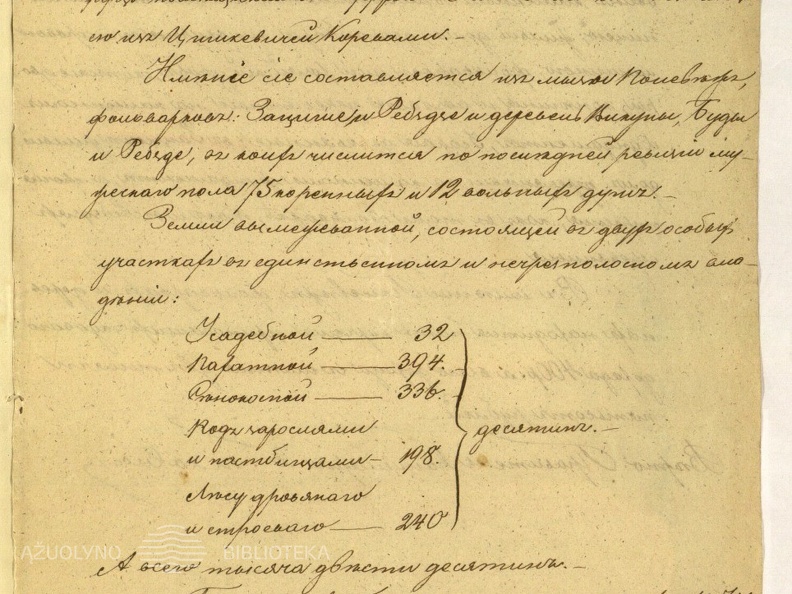 сю изъ Цишкевичей Коревами. —
Имѣніе сіе составляется изъ мызы Поневѣжъ,
фольварковъ: Зацишье и Ребзде и деревень Викупы, Буды
и Ребзде, въ коихъ числится по послѣдней ревизіи му-
жескаго пола 75 коренныхъ и 12 вольныхъ душъ. —
Земли вымежеванной, состоящей въ двухъ особыхъ
участкахъ въ единственномъ и нечрезполосномъ вла-
дѣніи:
Усадебной — 32
Пахатной — 394.
Сѣнокосной — 336.
Подъ зарослями
и пастбищами — 198 десятинъ. —
Лѣсу дровянаго
и строеваго — 240
AŽUOLYNO BIBLIOTEKA
А всего тысяча двѣсти десятинъ. —